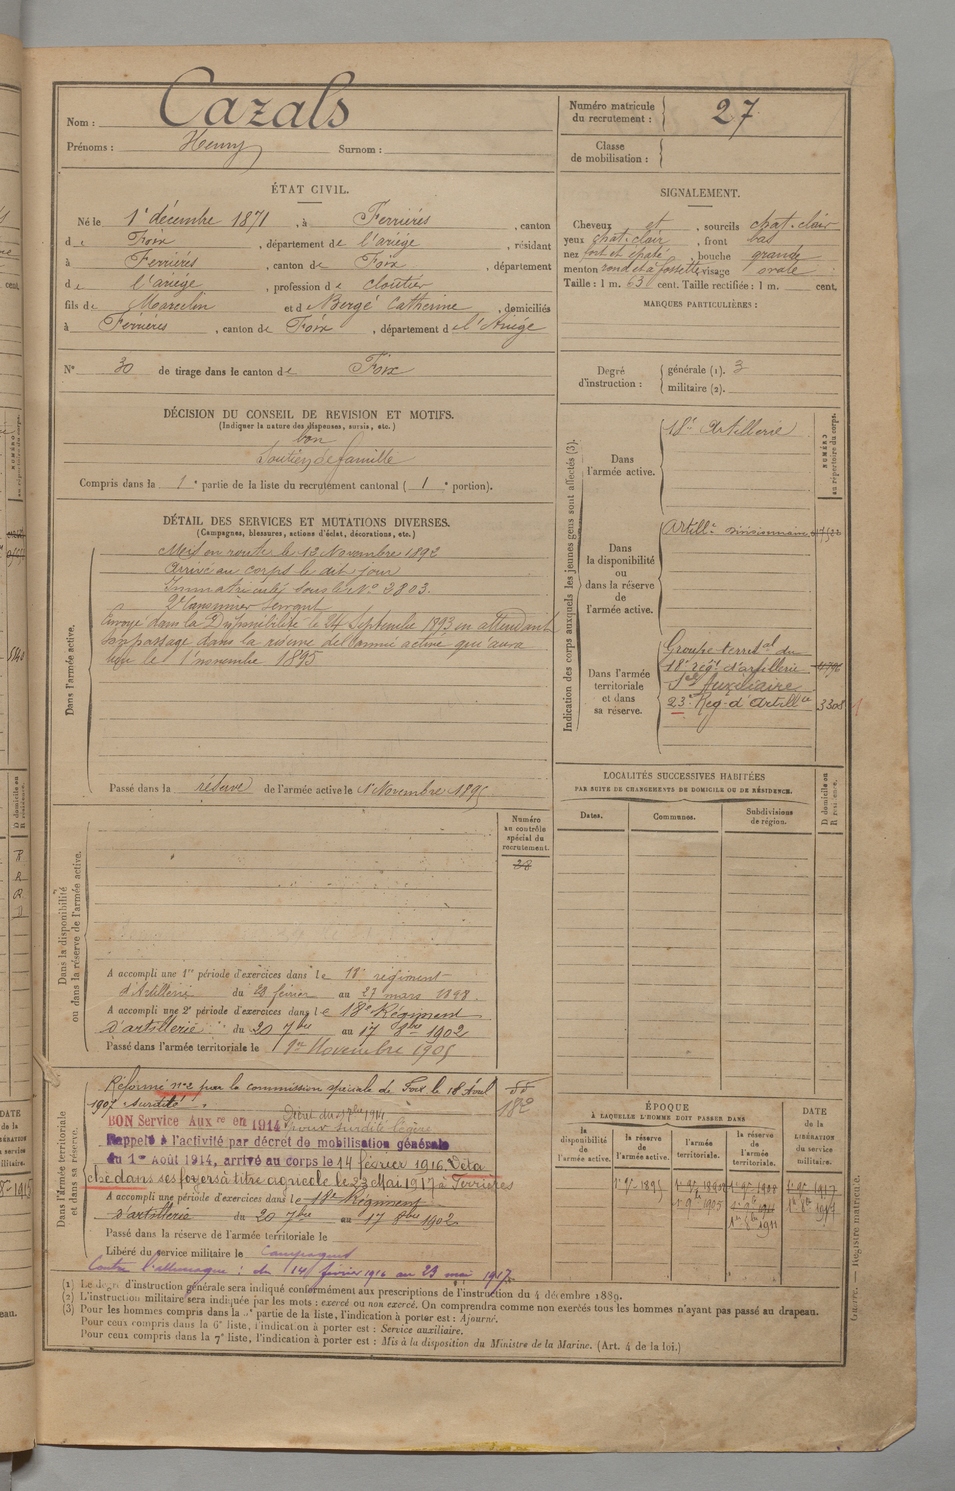 Nom : Cazals
Prénoms : Henry Surnom :
Numéro matricule du recrutement : 27
Classe de mobilisation :
ÉTAT CIVIL.
Né le 1er décembre 1871, à Ferrières, canton
de Foix, département de l'ariège, résidant
à Ferrières, canton de Foix, département
de l'ariège, profession de cloutier
fils de Marcelin et de Bergé Catherine, domiciliés
à Ferrières, canton de Foix, département de l'Ariège
N° 30 de tirage dans le canton de Foix
SIGNALEMENT.
Cheveux et, sourcils chat. clair
yeux chat. clair, front bas
nez fort et épaté, bouche grande
menton rond et à fossette, visage ovale
Taille : 1 m. 63 cent. Taille rectifiée : 1 m. cent.
MARQUES PARTICULIÈRES :
Degré d'instruction : générale (1). 3
militaire (2).
DÉCISION DU CONSEIL DE REVISION ET MOTIFS.
(Indiquer la nature des dispenses, sursis, etc.)
bon
Soutien de famille
Compris dans la 1e partie de la liste du recrutement cantonal (1e portion).
DÉTAIL DES SERVICES ET MUTATIONS DIVERSES.
(Campagnes, blessures, actions d'éclat, décorations, etc.)
Dans l'armée active.
Mis en route le 12 Novembre 1892
Arrivé au corps le dit jour
Immatriculé sous le N° 3803.
2e Canonnier servant
Envoyé dans la Disponibilité le 24 Septembre 1893 en attendant
son passage dans la réserve de l'armée active qui aura
lieu le 1er novembre 1895
Passé dans la réserve de l'armée active le 1er Novembre 1895
Indication des corps auxquels les jeunes gens sont affectés (3).
NUMÉRO au répertoire du corps.
Dans l'armée active.
18e Artillerie
Dans la disponibilité ou dans la réserve de l'armée active.
Artillie divisionnaire
Dans l'armée territoriale et dans sa réserve.
Groupe territal du
18e régt d'artillerie
Sce Auxiliaire
23e Rég. d'Artillie 3308
LOCALITÉS SUCCESSIVES HABITÉES
PAR SUITE DE CHANGEMENTS DE DOMICILE OU DE RÉSIDENCE.
Dates. Communes. Subdivisions de région. D domicile ou R résidence.
Numéro au contrôle spécial du recrutement.
28
Dans la disponibilité ou dans la réserve de l'armée active.
A accompli une 1re période d'exercices dans le 18e régiment
d'Artillerie du 28 février au 27 mars 1898.
A accompli une 2e période d'exercices dans le 18e Régiment
d'artillerie du 20 7bre au 17 8bre 1902
Passé dans l'armée territoriale le 1er Novembre 1905
Dans l'armée territoriale et dans sa réserve.
Réformé n°2 par la commission spéciale de Foix le 18 Avril
1907 surdité.
BON Service Auxre en 1914
Rappelé à l'activité par décret de mobilisation générale
du 1er Août 1914, arrivé au corps le 14 février 1916. Déta
ché dans ses foyers à titre agricole le 23 Mai 1917 à Ferrières
A accompli une période d'exercices dans le 18e Régiment
d'artillerie du 20 7bre au 17 8bre 1902
Passé dans la réserve de l'armée territoriale le
Libéré du service militaire le Campagnes
Contre l'allemagne : du 14 février 1916 au 23 mai 1917.
ÉPOQUE
À LAQUELLE L'HOMME DOIT PASSER DANS
la disponibilité de l'armée active.
la réserve de l'armée active.
l'armée territoriale.
la réserve de l'armée territoriale.
DATE de la LIBÉRATION du service militaire.
(1) Le degré d'instruction générale sera indiqué conformément aux prescriptions de l'instruction du 4 décembre 1889.
(2) L'instruction militaire sera indiquée par les mots : exercé ou non exercé. On comprendra comme non exercés tous les hommes n'ayant pas passé au drapeau.
(3) Pour les hommes compris dans la 2e partie de la liste, l'indication à porter est : Ajourné.
Pour ceux compris dans la 6e liste, l'indication à porter est : Service auxiliaire.
Pour ceux compris dans la 7e liste, l'indication à porter est : Mis à la disposition du Ministre de la Marine. (Art. 4 de la loi.)
Registre matricule.